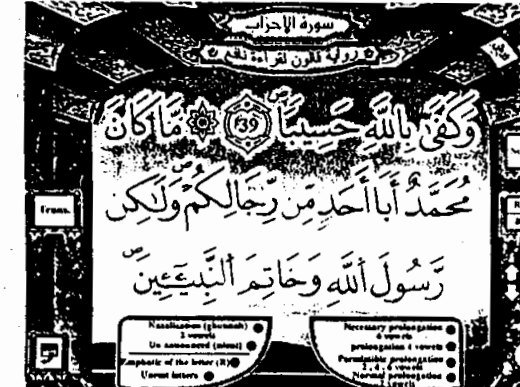 سورة الإحزاب
رواية قالون لقراءة نافع
وَكَفَىٰ بِاللَّهِ حَسِيبًا 39 مَّا كَانَ
مُحَمَّدٌ أَبَا أَحَدٍ مِّن رِّجَالِكُمْ وَلَٰكِن
رَّسُولَ ٱللَّهِ وَخَاتِمَ ٱلنَّبِيٓـِٔينَ
Trans.
Nasalization (ghunnah)
2 vowels
Un announced (silent)
Emphatic of the letter (R)
Unrent letters
Necessary prolongation
6 vowels
prolongation 4 vowels
Permissible prolongation
2, 4, 6 vowels
Normal prolongation
2 vowels